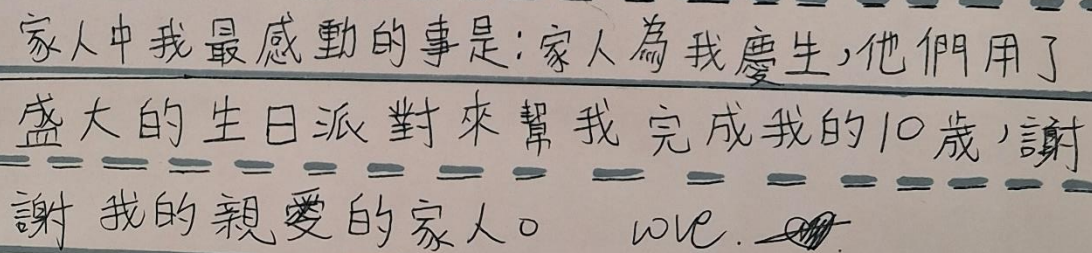 家人中我最感動的事是:家人為我慶生,他們用了
盛大的生日派對來幫我完成我的10歲,謝
謝我的親愛的家人。 love.